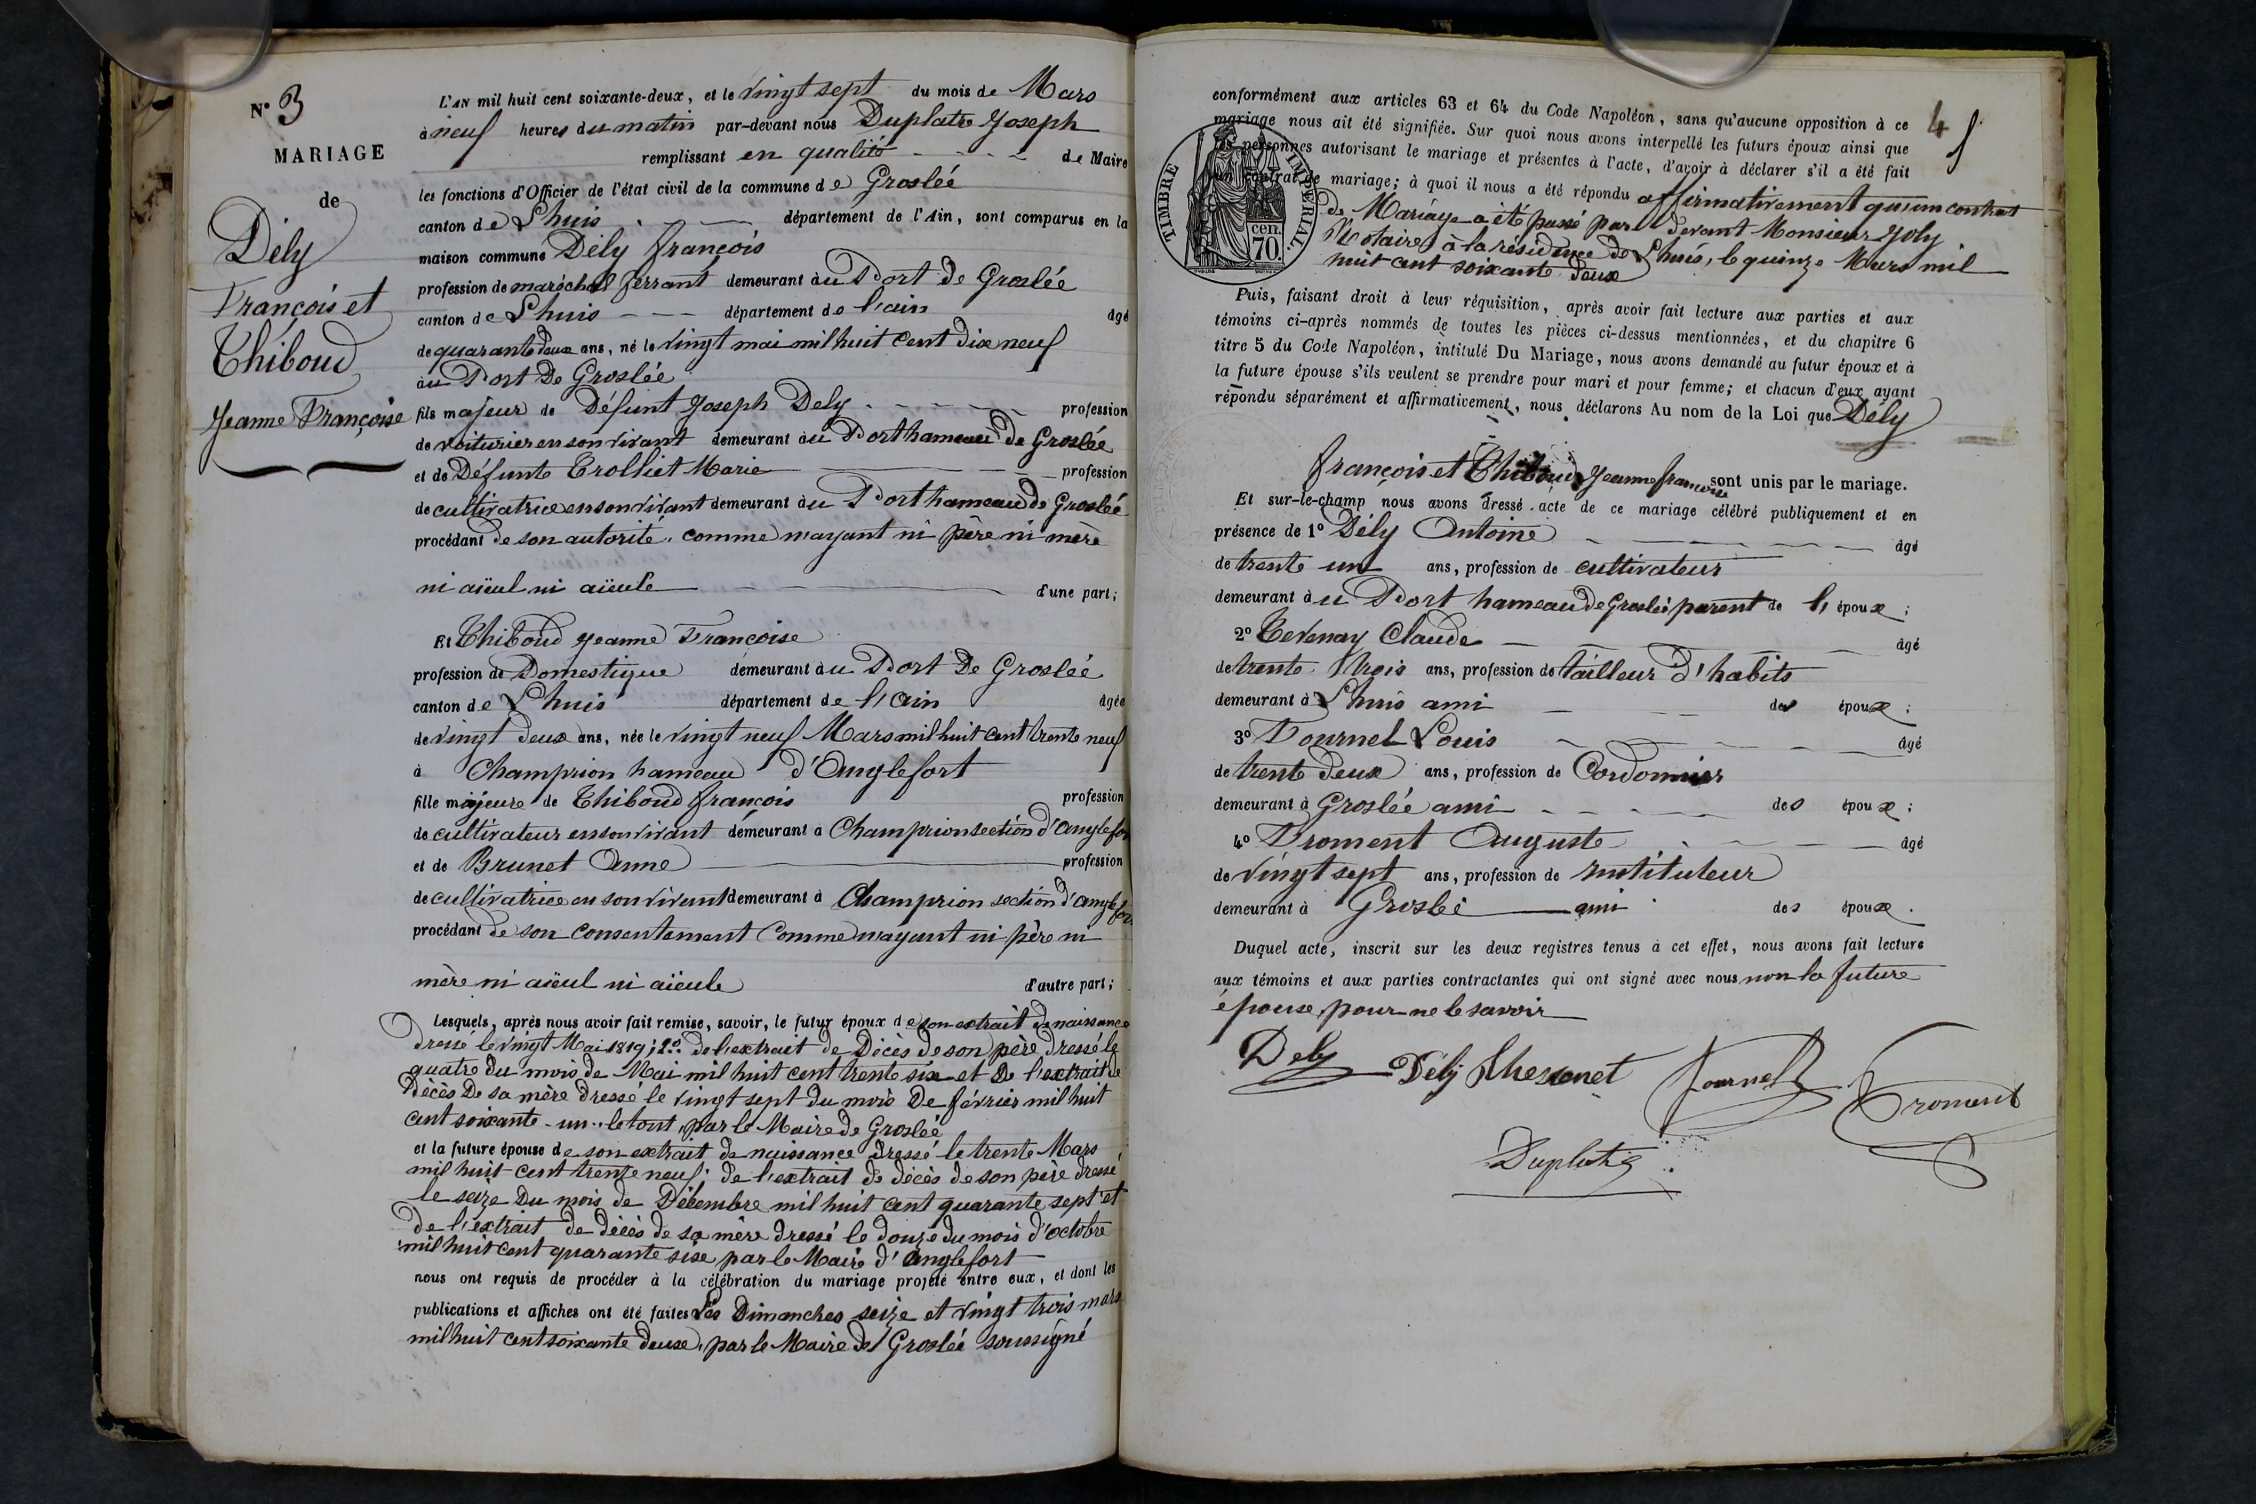 N° 3
MARIAGE
de
Dély
François et
Thiboud
Jeanne Françoise
L'AN mil huit cent soixante-deux, et le vingt sept du mois de Mars
à neuf heures du matin par-devant nous Duplatre Joseph
remplissant en qualité de Maire
les fonctions d'Officier de l'état civil de la commune de Groslée
canton de Lhuis département de l'Ain, sont comparus en la
maison commune Dély françois
profession de maréchal ferrant demeurant àu Port de Groslée
canton de Lhuis département de l'ain âgé
de quarante deux ans, né le vingt mai mil huit cent dix neuf
àu Port de Groslée
fils majeur de Défunt Joseph Dely profession
de voiturier en son vivant demeurant àu Port hameau de Groslée
et de Défunte Trolliet Marie profession
de cultivatrice en son vivant demeurant àu Port hameau de Groslée
procédant de son autorité comme n'ayant ni père ni mère
ni aïeul ni aïeule d'une part;
Et Thiboud Jeanne Françoise
profession de Domestique demeurant àu Port de Groslée
canton de Lhuis département de l'ain âgée
de vingt deux ans, née le vingt neuf Mars mil huit cent trente neuf
à Champrion hameau d'Anglefort
fille majeure de Thiboud françois profession
de cultivateur en son vivant demeurant à Champrion section d'anglefor
et de Brunet Anne profession
de cultivatrice en son vivant demeurant à Champrion section d'anglefor
procédant de son consentement comme n'ayant ni père ni
mère ni aïeul ni aïeule d'autre part;
Lesquels, après nous avoir fait remise, savoir, le futur époux de son extrait de naissance
dressé le vingt Mai 1819; 2° de l'extrait de Décès de son père dressé le
quatre du mois de Mai mil huit cent trente six et de l'extrait de
Décès de sa mère dressé le vingt sept du mois de février mil huit
cent soixante-un.. le tout par le Maire de Groslée
et la future épouse de son extrait de naissance dressé le trente Mars
mil huit cent trente neuf; de l'extrait de décès de son père dressé
le seize du mois de Décembre mil huit cent quarante sept et
de l'extrait de décès de sa mère dressé le douze du mois d'octobre
mil huit cent quarante sise par le Maire d'Anglefort
nous ont requis de procéder à la célébration du mariage projeté entre eux, et dont les
publications et affiches ont été faites Les Dimanches seize et vingt trois mars
mil huit cent soixante deuse, par le Maire de Groslée soussigné
4
conformément aux articles 63 et 64 du Code Napoléon, sans qu'aucune opposition à ce
mariage nous ait été signifiée. Sur quoi nous avons interpellé les futurs époux ainsi que
les personnes autorisant le mariage et présentes à l'acte, d'avoir à déclarer s'il a été fait
un contrat de mariage; à quoi il nous a été répondu affirmativement qu'un contrat
de Mariage a été passé par devant Monsieur Joly
Notaire à la résidence de Lhuis, le quinze Mars mil
huit cent soixante deux
TIMBRE IMPERIAL
70 cen.
Puis, faisant droit à leur réquisition, après avoir fait lecture aux parties et aux
témoins ci-après nommés de toutes les pièces ci-dessus mentionnées, et du chapitre 6
titre 5 du Code Napoléon, intitulé Du Mariage, nous avons demandé au futur époux et à
la future épouse s'ils veulent se prendre pour mari et pour femme; et chacun d'eux ayant
répondu séparément et affirmativement, nous déclarons Au nom de la Loi que Dély
françois et Thiboud Jeanne francoise sont unis par le mariage.
Et sur-le-champ nous avons dressé acte de ce mariage célébré publiquement et en
présence de 1° Dély Antoine âgé
de trente un ans, profession de cultivateur
demeurant àu Port hameau de Groslée parent de l'époux;
2° Tevenay Claude âgé
de trente trois ans, profession de tailleur d'habits
demeurant à Lhuis ami des époux;
3° Fournel Louis âgé
de trente deux ans, profession de Cordonnier
demeurant à Groslée ami des époux;
4° Froment Auguste âgé
de vingt sept ans, profession de instituteur
demeurant à Groslée ami des époux.
Duquel acte, inscrit sur les deux registres tenus à cet effet, nous avons fait lecture
aux témoins et aux parties contractantes qui ont signé avec nous non la future
épouse, pour ne le savoir
Dely Délÿ Fournel Froment
Duplatre